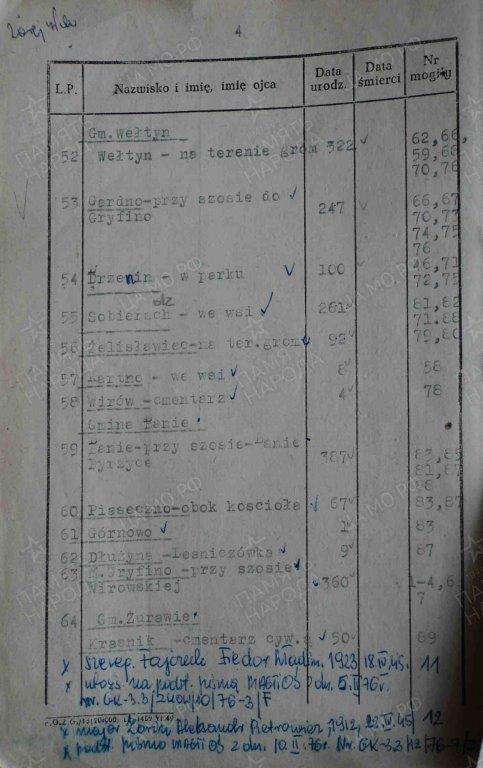 4.
L.P.
Nazwisko i imię, imię ojca
Data urodz.
Data śmierci
Nr mogiły
Gm.Wełtyn
52 Wełtyn - na terenie grom 322 62,66,
59,68
70,76
53 Gardno-przy szosie do 247 66,67
Gryfino 70,77
74,75
76
54 Drzenin - w parku 100 46,71
72,75
55 Sobieradz - we wsi 261 81,82
71.88
56 Żelisławiec-na ter.grom 92 79,80
57 Bartno - we wsi 8 58
58 Wirów -cmentarz 4 78
Gmina Banie
59 Banie-przy szosie-Banie 387 83,85
Pyrzyce 81,87
88
60 Piaseczno-obok kościoła 67 83,87
61 Górnowo 1 83
62 Dłużyna -Leśniczówka 9 87
63 M.Gryfino -przy szosie 360 1-4,6
Wirowskiej 7
64 Gm.Żurawie
Krasnik -cmentarz cyw. 50 89
x szereg. Fedor Władim. 1923 18.IV.45. 11
x na podst. pisma z dn. 5.II.76r.
Nr. GK-3.3/ /76-3/F
x major Aleksandr Piotrowicz, 1912, 22.IV.45/ 12
x podst. pismo z dn. 10.II.76r. Nr. GK-3.3/